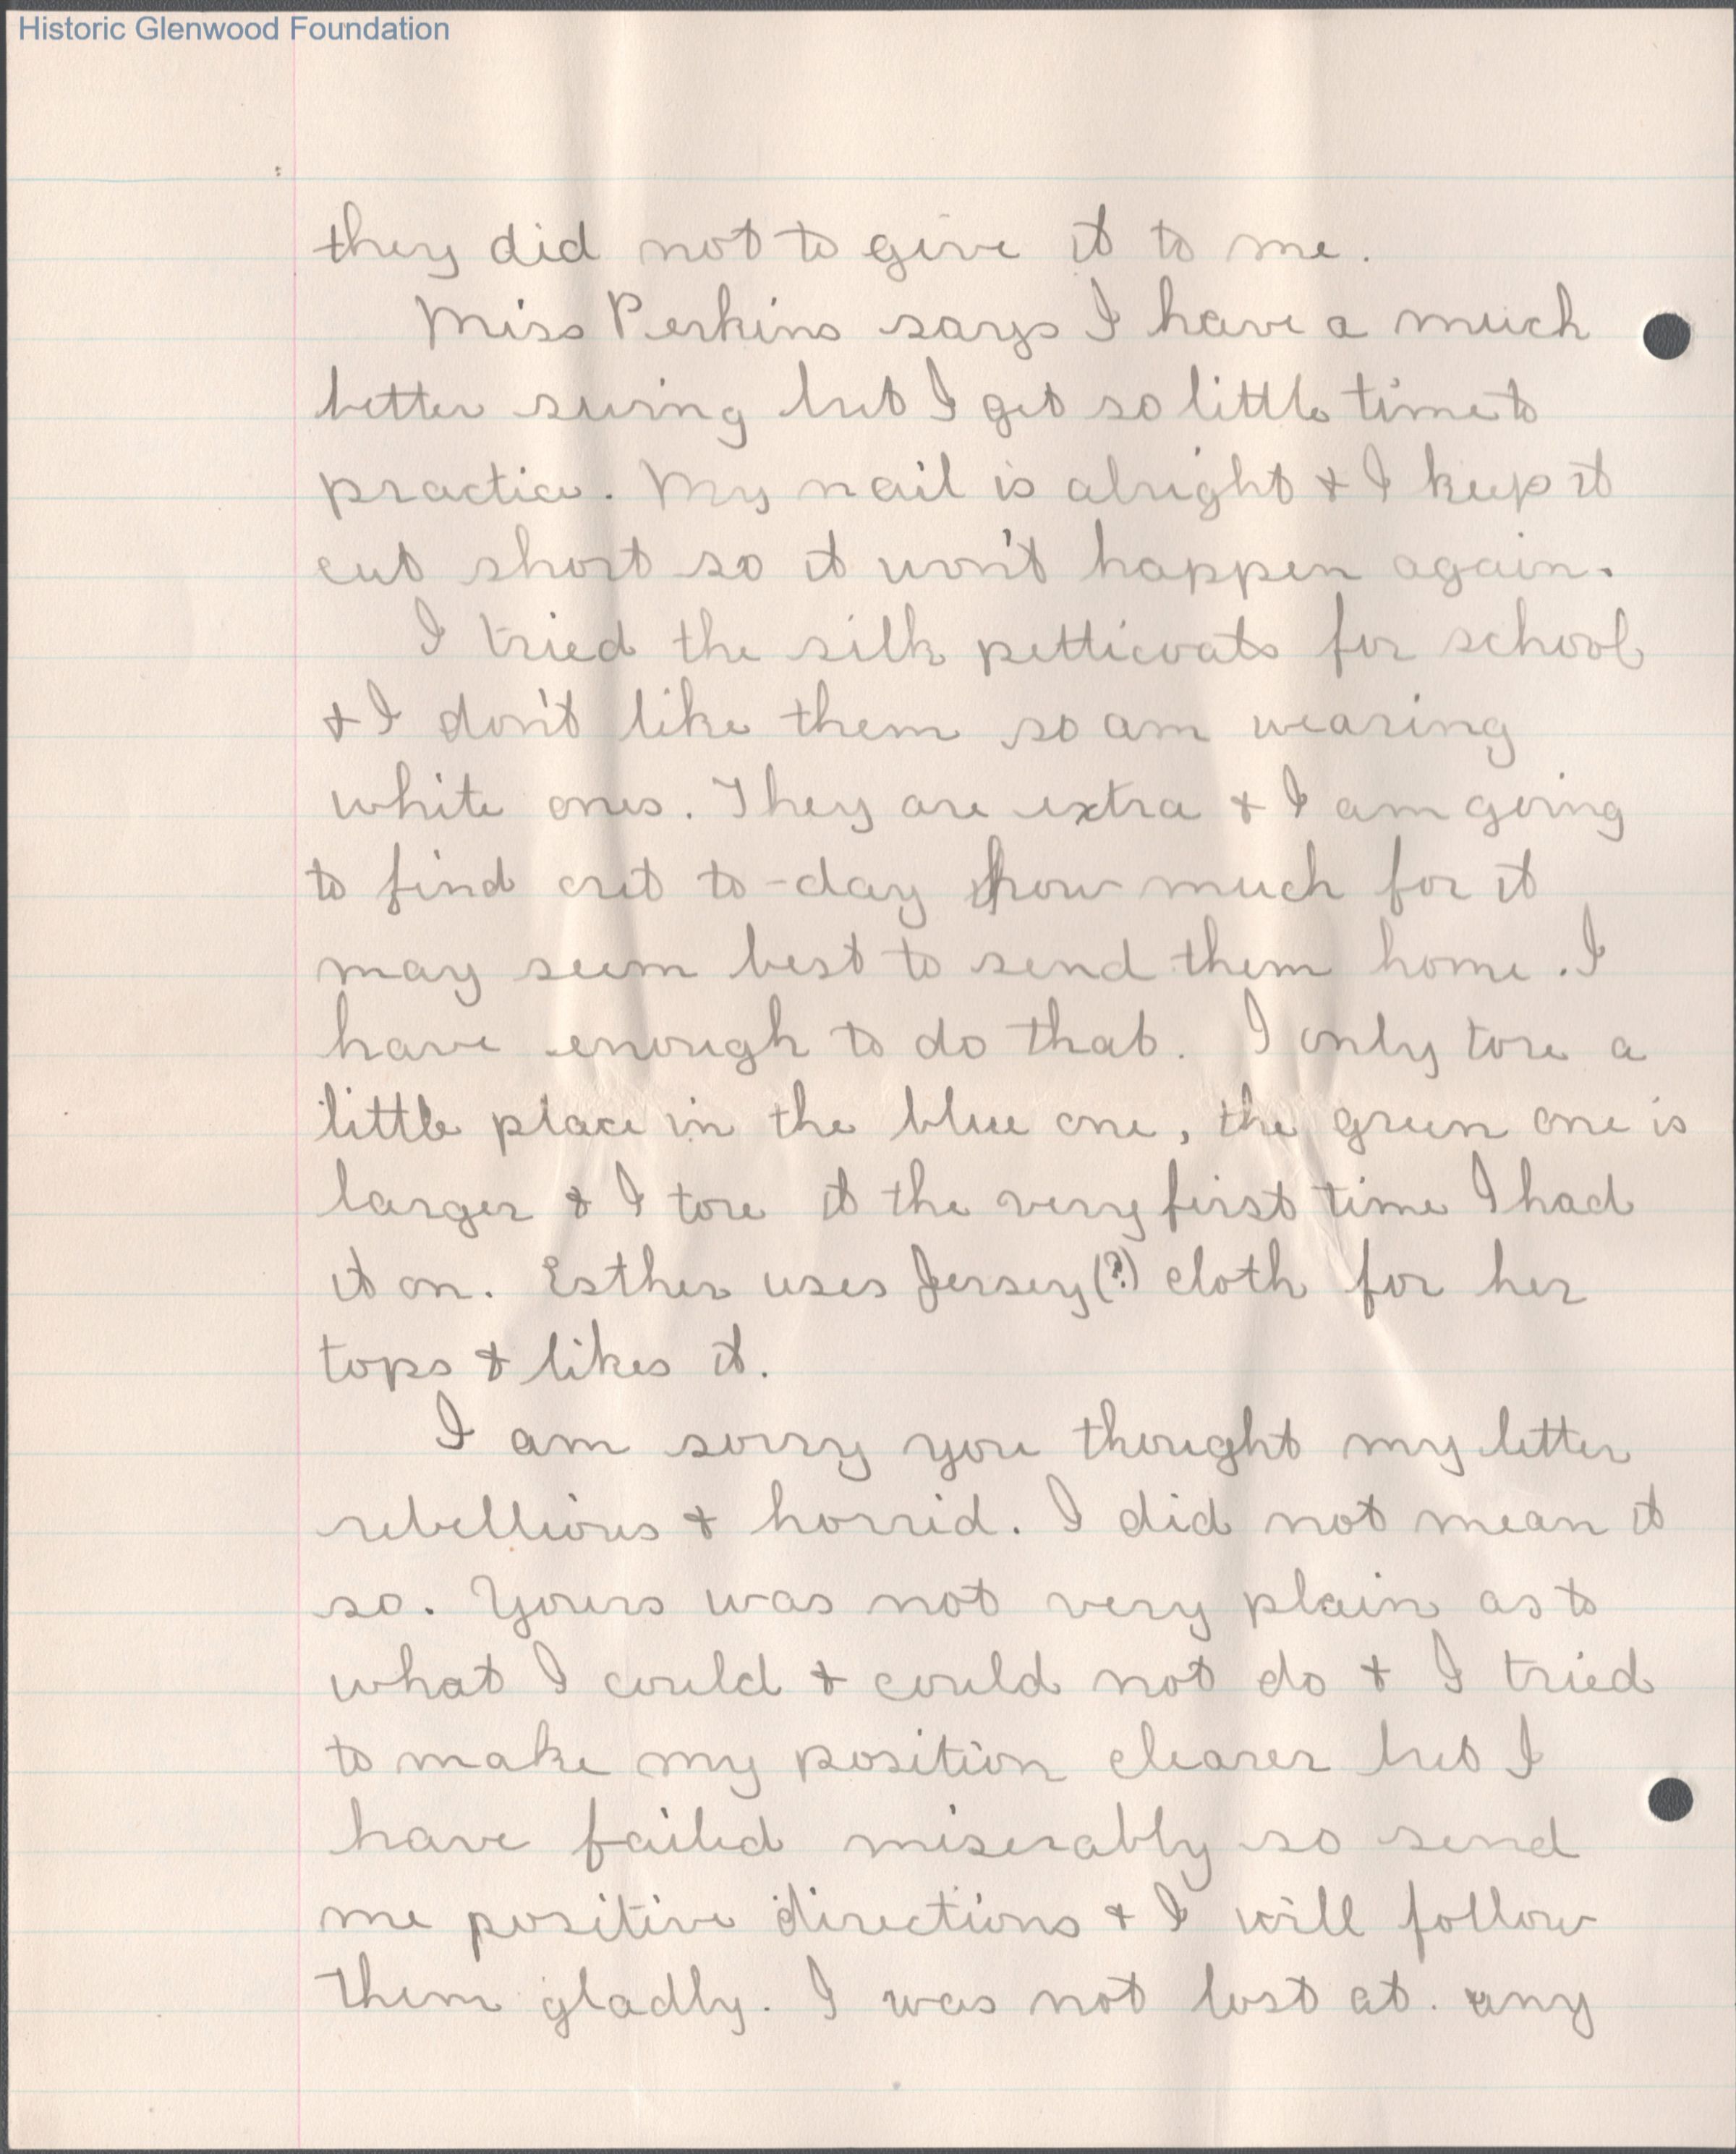 Historic Glenwood Foundation
they did not to give it to me.
Miss Perkins says I have a much
better swing but I get so little time to
practice. My nail is alright & I keep it
cut short so it won't happen again.
I tried the silk petticoats for school
& I don't like them so am wearing
white ones. They are extra & I am going
to find out to-day how much for it
may seem best to send them home. I
have enough to do that. I only tore a
little place in the blue one, the green one is
larger & I tore it the very first time I had
it on. Esther uses Jersey(?) cloth for her
tops & likes it.
I am sorry you thought my letter
rebellious & horrid. I did not mean it
so. Yours was not very plain as to
what I could & could not do & I tried
to make my position clearer but I
have failed miserably so send
me positive directions & I will follow
them gladly. I was not lost at any